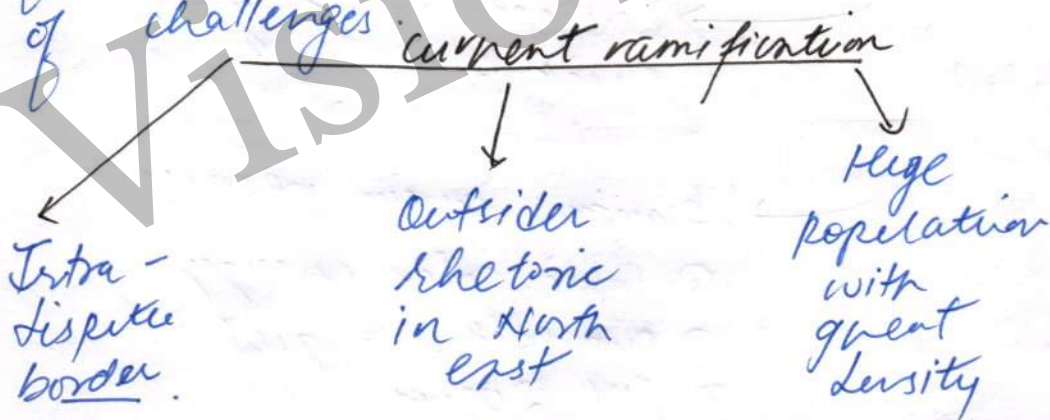 of challenges.
current ramification
Intra-
dispute
border.
Outsider
rhetoric
in North
east
Huge
population
with
great
density
Visio